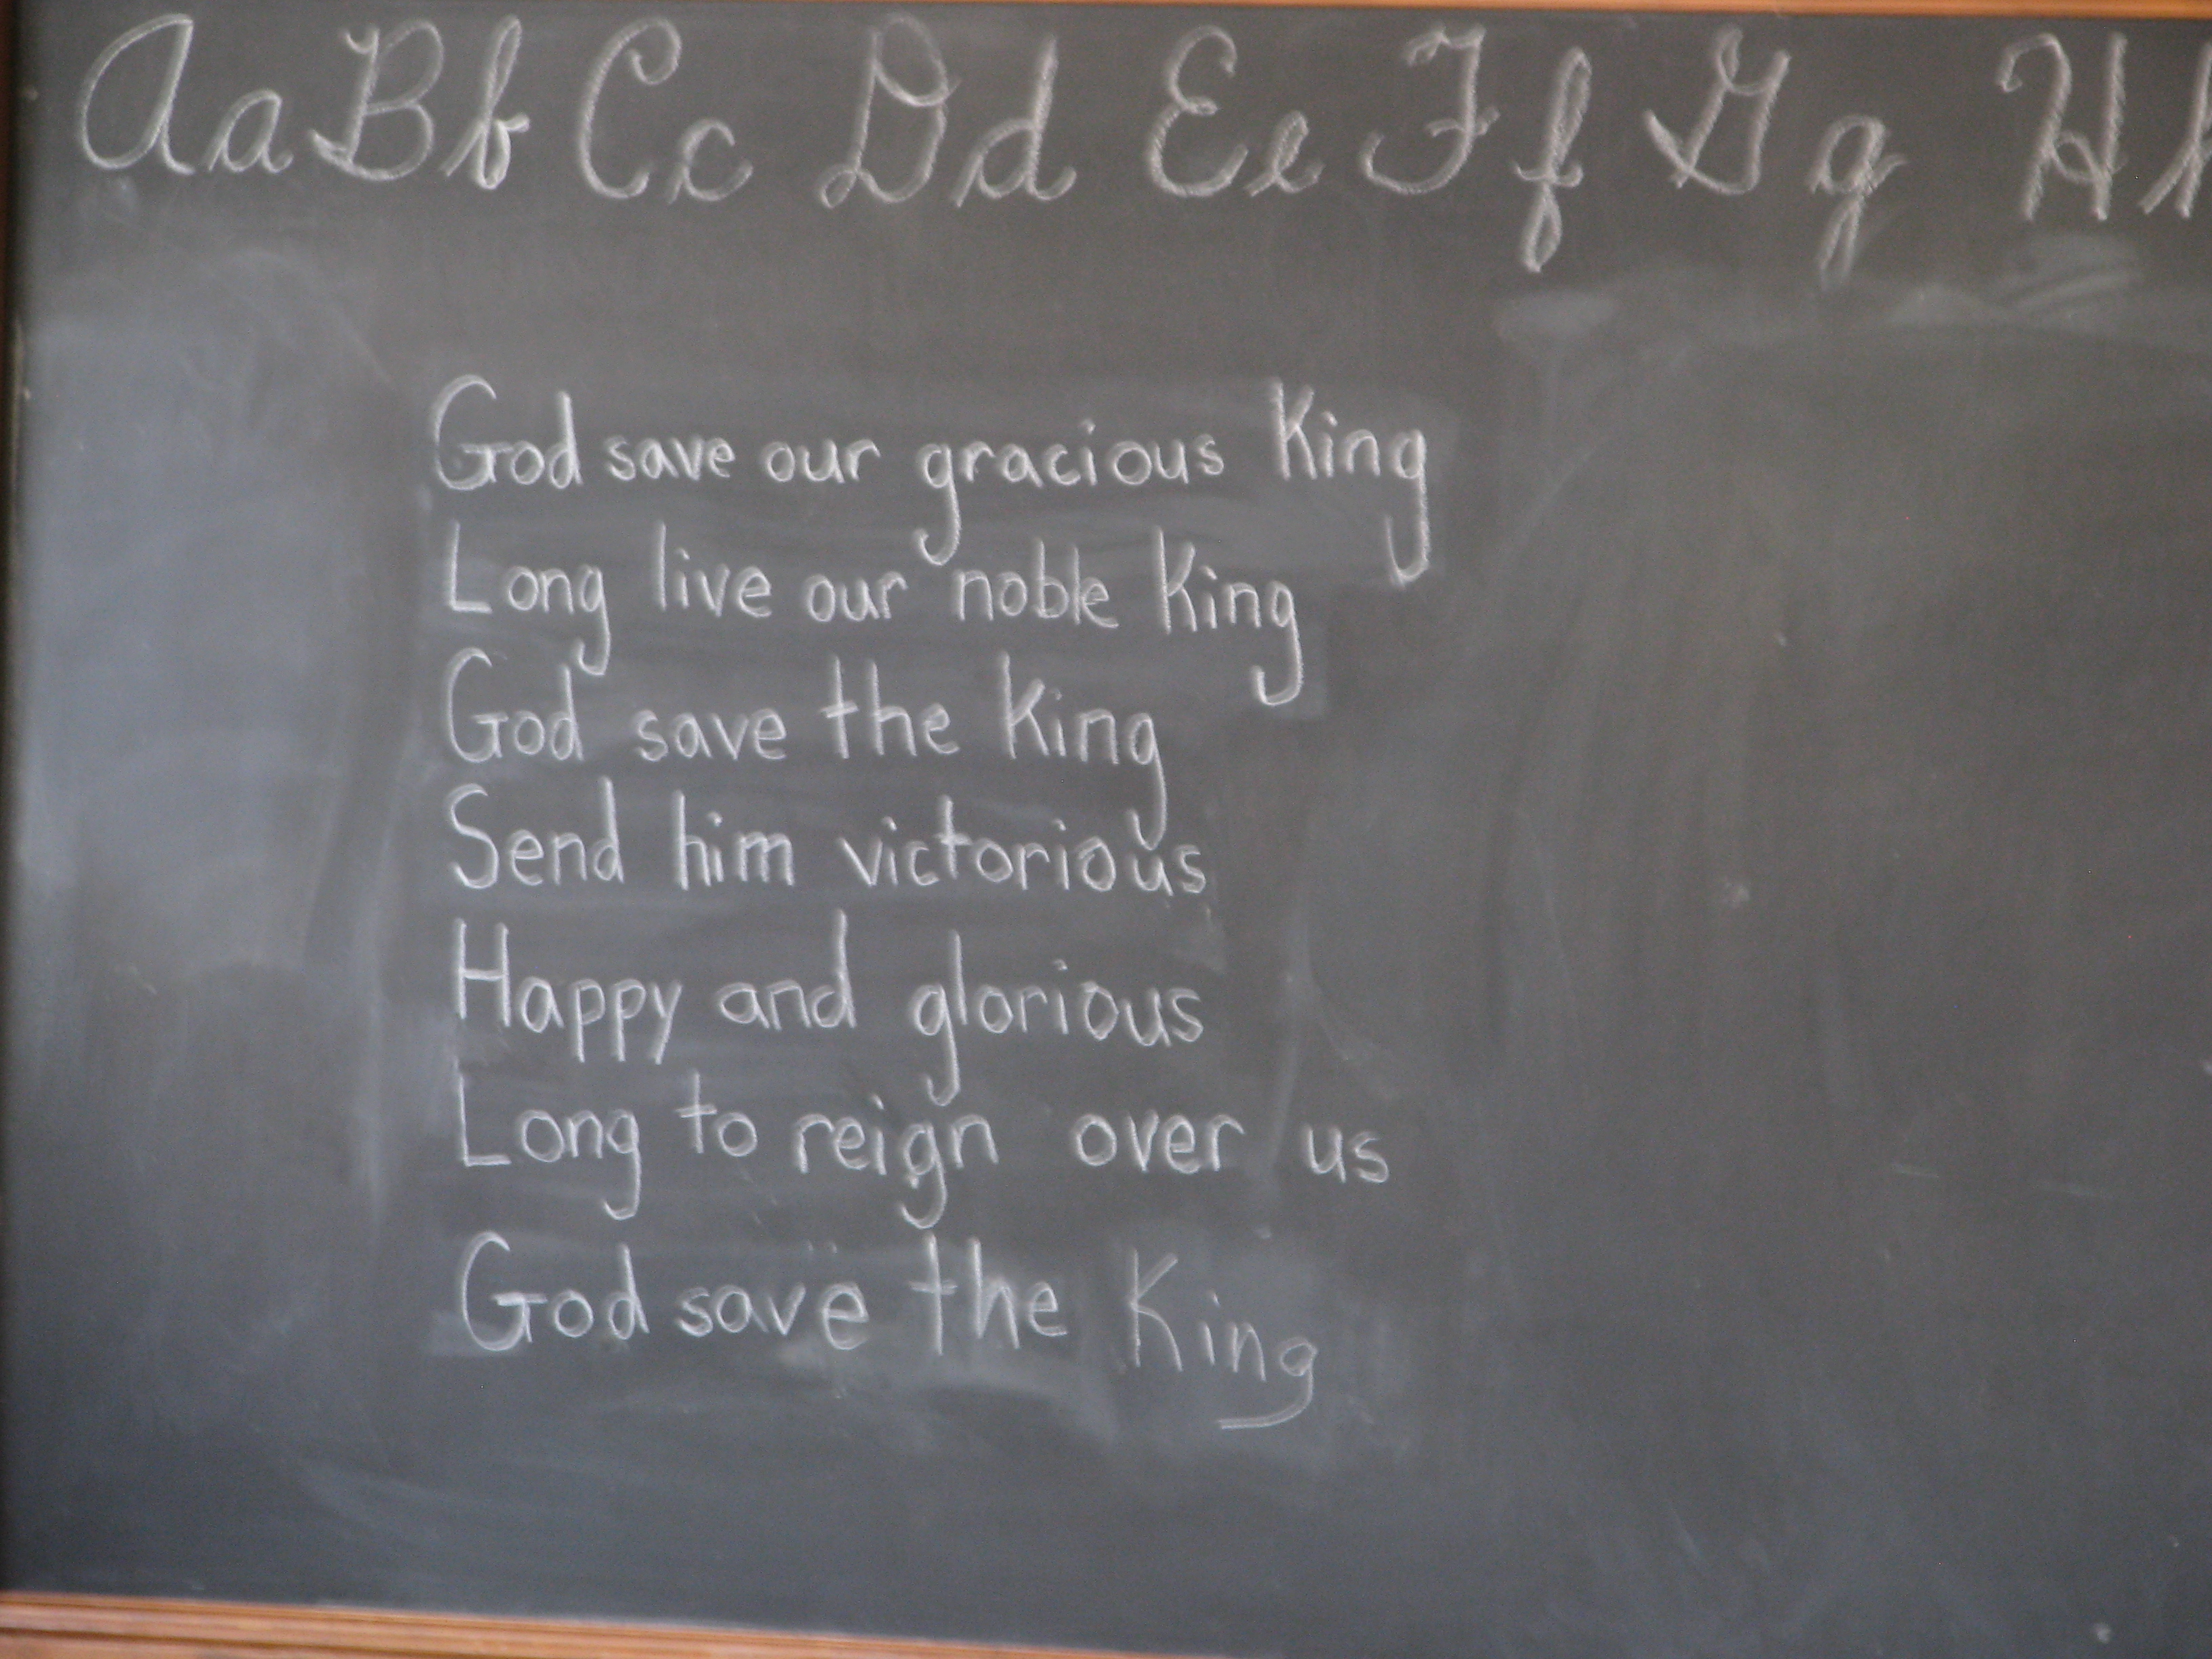 Aa Bb Cc Dd Ee Ff Gg Hh
God save our gracious King
Long live our noble King
God save the King
Send him victorious
Happy and glorious
Long to reign over us
God save the King